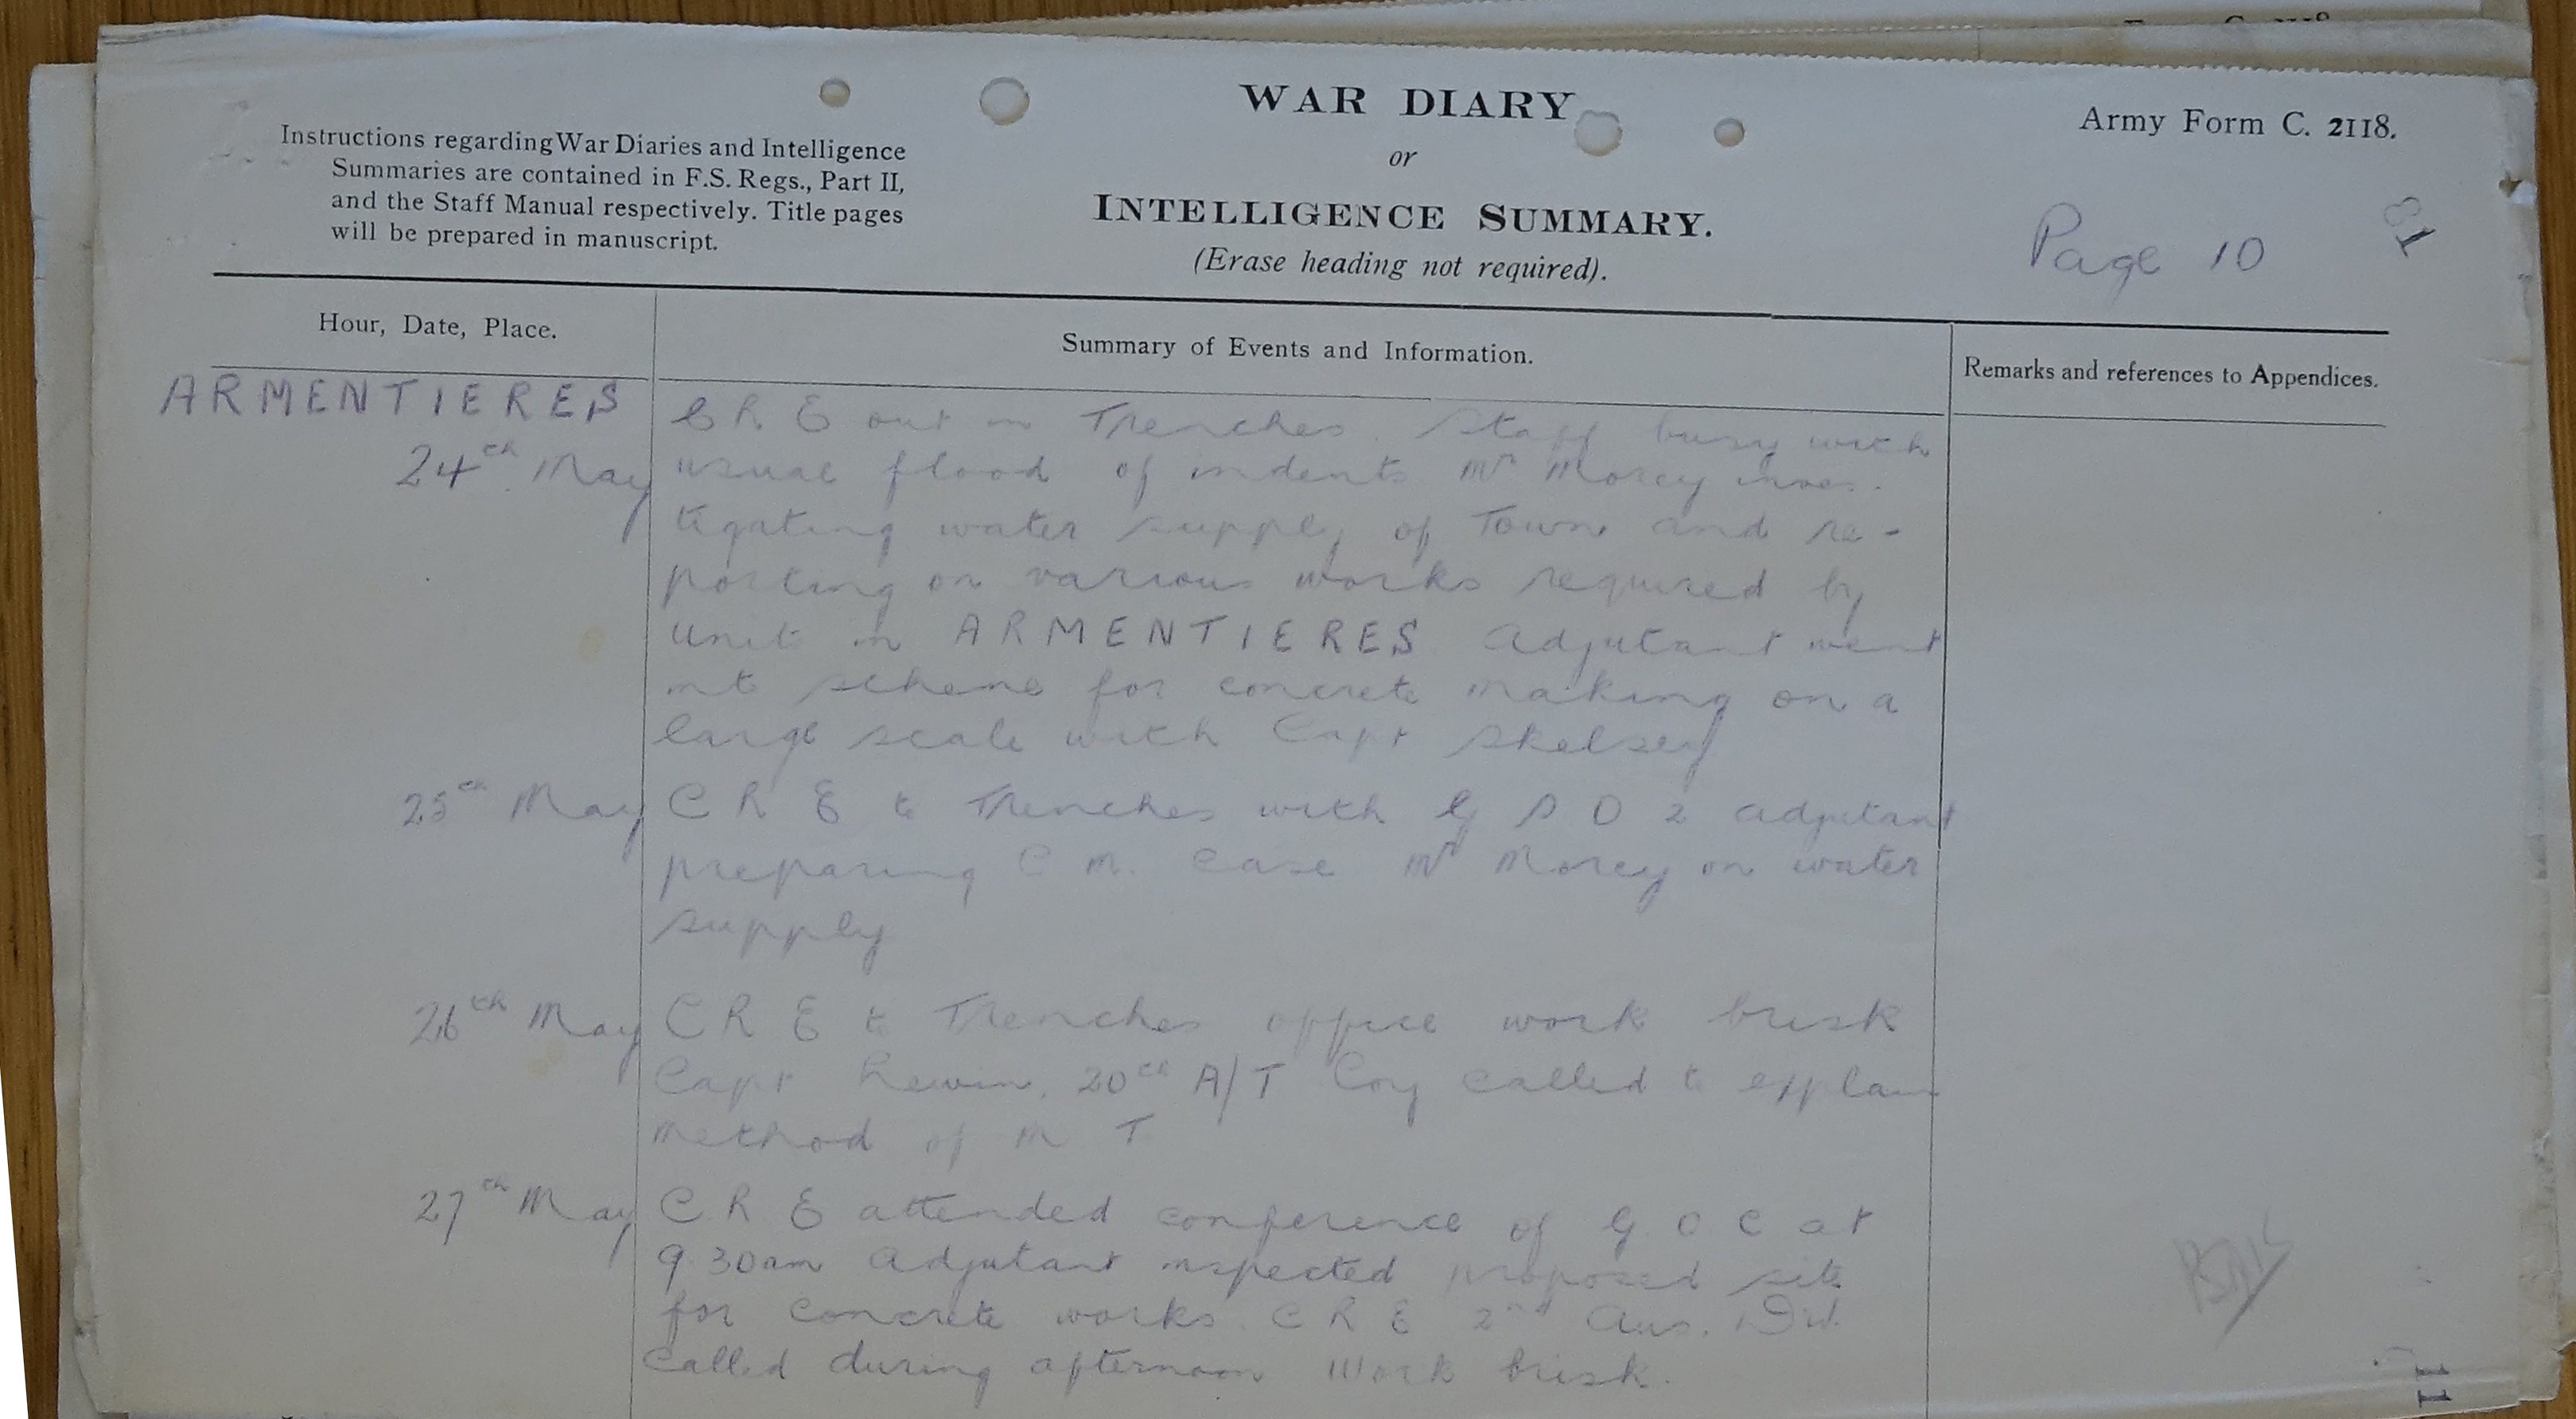 WAR DIARY
or
INTELLIGENCE SUMMARY.
(Erase heading not required).
Instructions regarding War Diaries and Intelligence
Summaries are contained in F.S. Regs., Part II,
and the Staff Manual respectively. Title pages
will be prepared in manuscript.
Army Form C. 2118.
Page 10
81
Hour, Date, Place.
Summary of Events and Information.
Remarks and references to Appendices.
ARMENTIERES
24th May
C R E out in Trenches. Staff busy with
usual flood of indents Mr Morcy inves-
tigating water supply of Town and re-
porting on various works required by
unit in ARMENTIERES Adjutant went
int scheme for concrete making on a
large scale with Capt Skelsey
25th May
C R E to Trenches with G S O 2 Adjutant
preparing C M. Case Mr Morcy on water
supply
26th May
C R E to Trenches office work brisk
Capt Lewin, 20th A/T Coy called to explain
method of M T
27th May
C R E attended conference of G O C at
9.30am Adjutant inspected proposed site
for concrete works. C R E 2nd Aus. Div.
called during afternoon Work brisk.
11